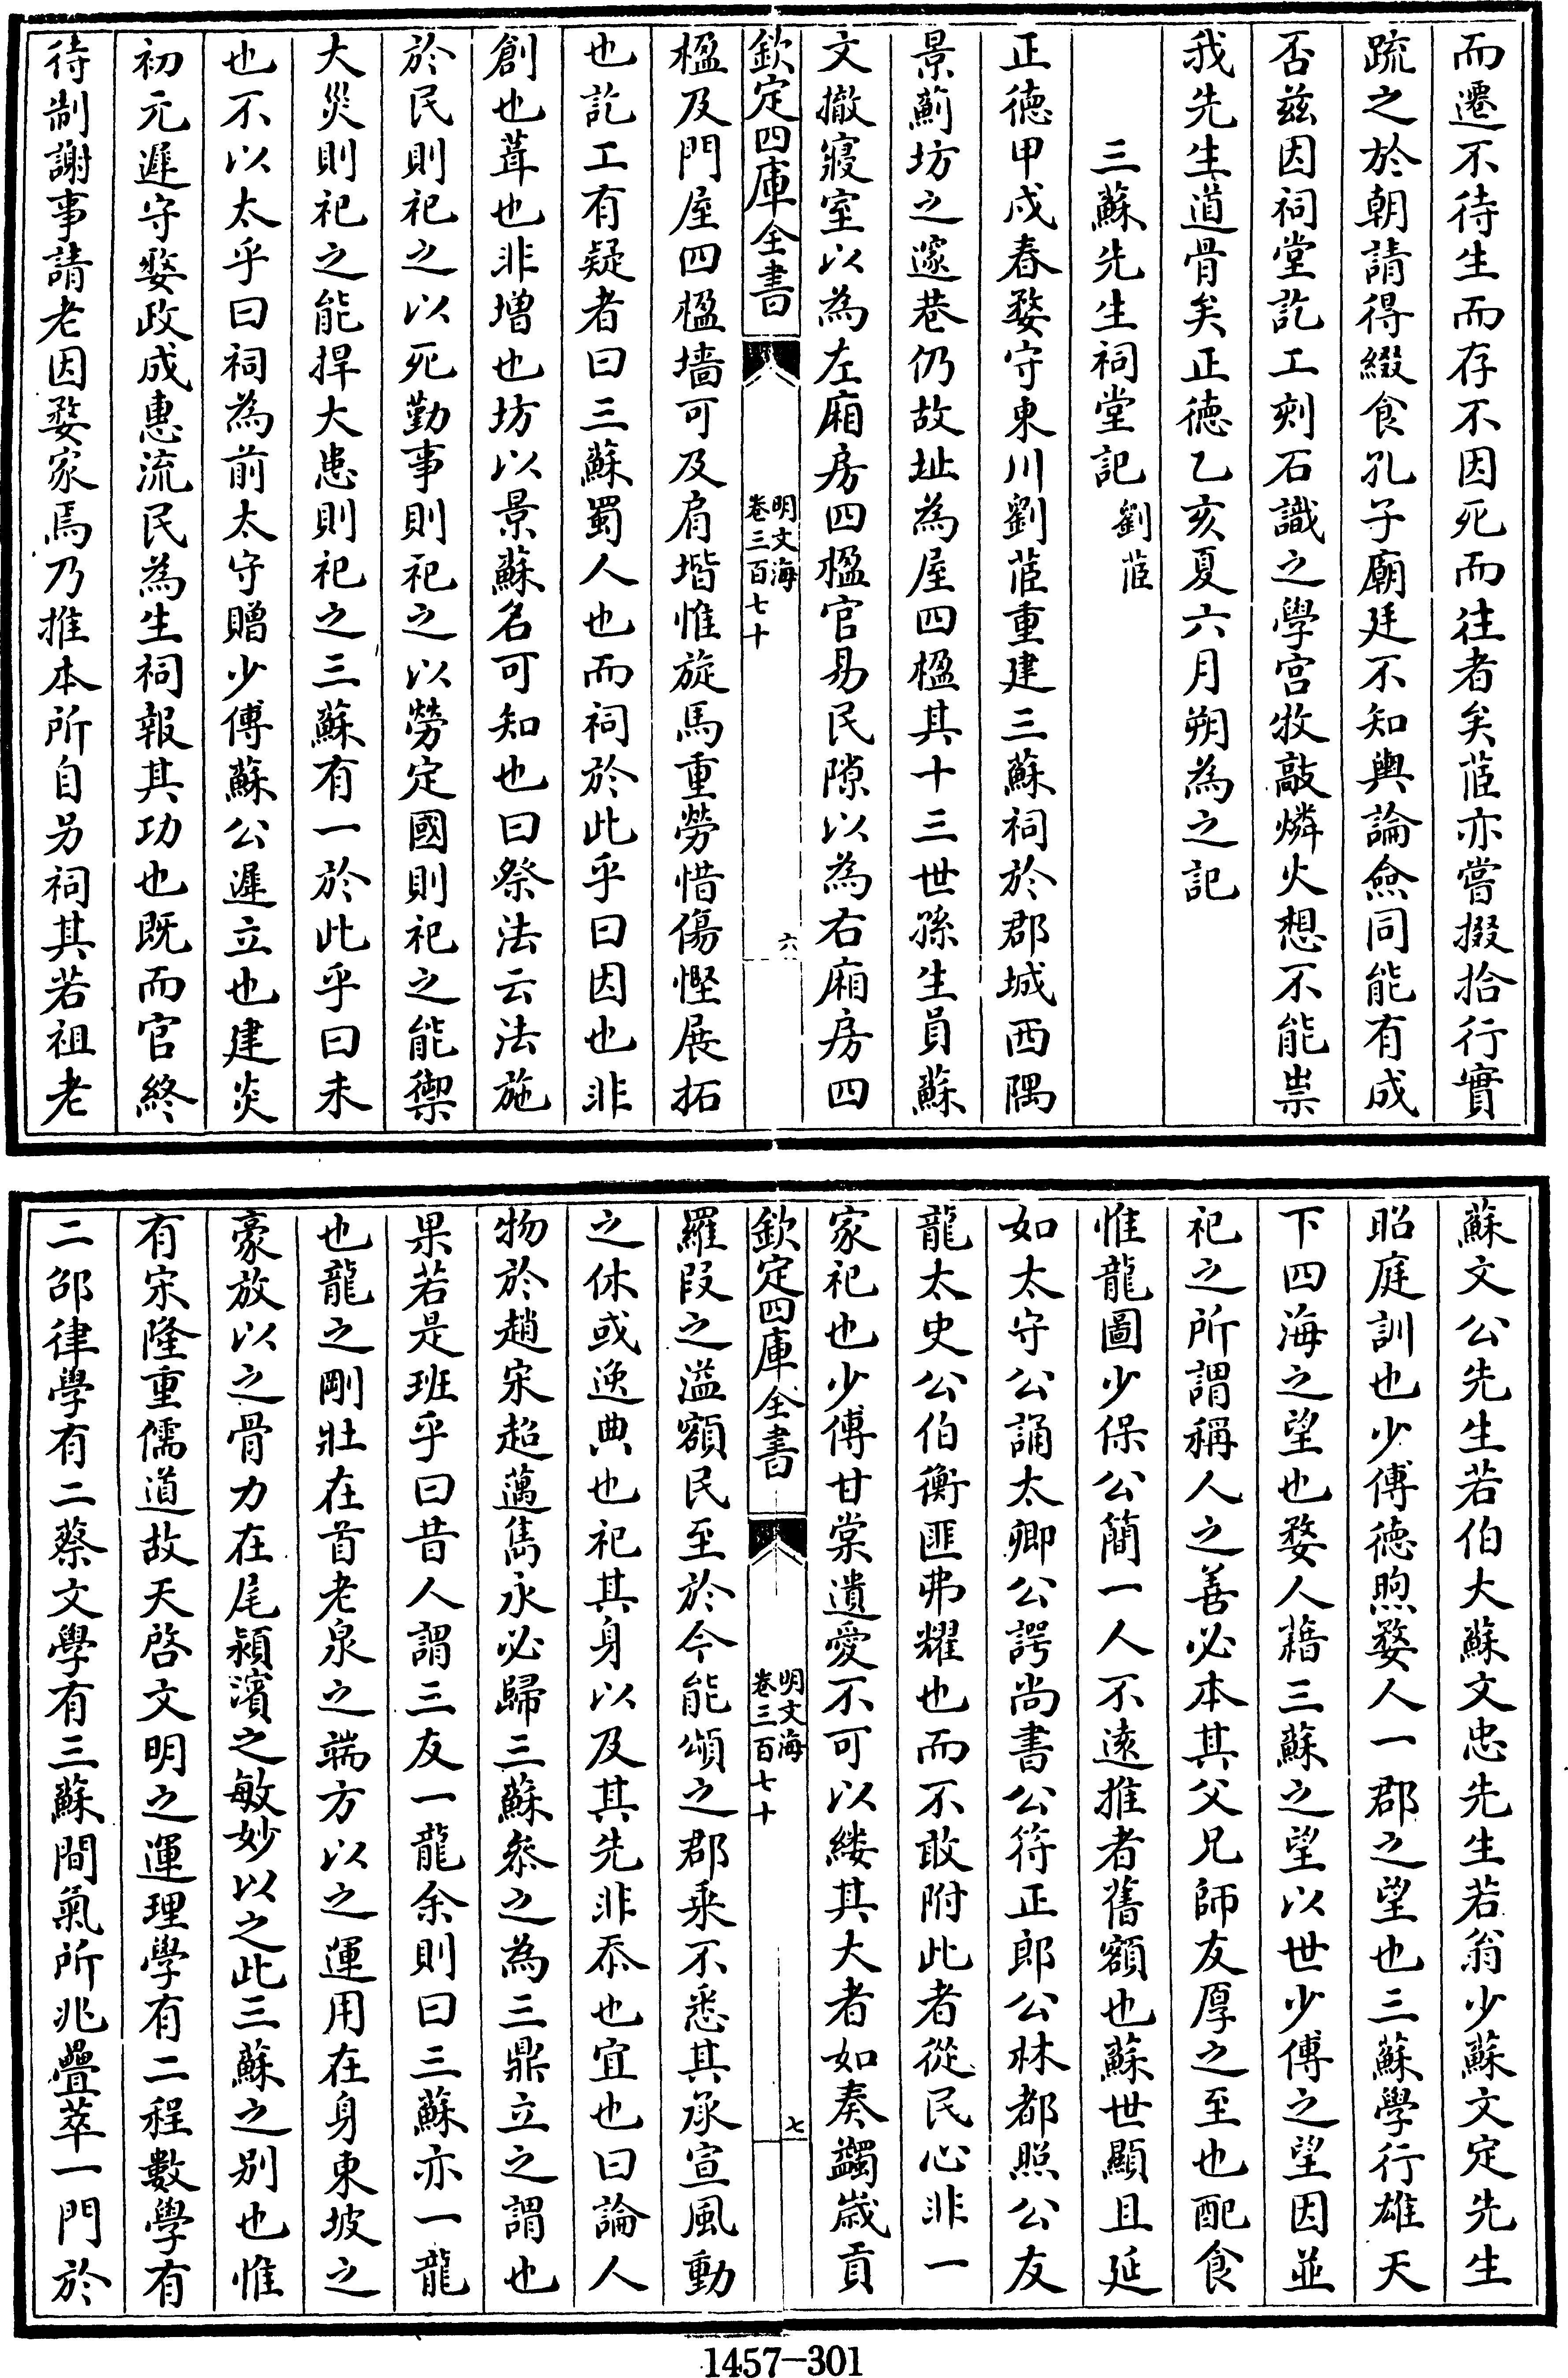 而遷不待生而存不因死而往者矣茝亦嘗掇拾行實
疏之於朝請得綴食孔子廟廷不知輿論僉同能有成
否兹因祠堂訖工刻石識之學宫牧敲燐火想不能祟
我先生道骨矣正徳乙亥夏六月朔為之記
三蘇先生祠堂記劉茝
正徳甲戍春婺守東川劉茝重建三蘇祠於郡城西隅
景薊坊之邃巷仍故址為屋四楹其十三世孫生員蘇
文撤寢室以為左廂房四楹官易民隙以為右廂房四
欽定四庫全書
明文海
卷三百七十
六
楹及門屋四楹墻可及肩堦惟旋馬重勞惜傷慳展拓
也訖工有疑者曰三蘇蜀人也而祠於此乎曰因也非
創也葺也非增也坊以景蘇名可知也曰祭法云法施
於民則祀之以死勤事則祀之以勞定國則祀之能禦
大災則祀之能捍大患則祀之三蘇有一於此乎曰未
也不以太乎曰祠為前太守贈少傅蘇公遲立也建炎
初元遲守婺政成惠流民為生祠報其功也既而官終
待制謝事請老因婺家焉乃推本所自另祠其若祖老
蘇文公先生若伯大蘇文忠先生若翁少蘇文定先生
昭庭訓也少傅徳煦婺人一郡之望也三蘇學行雄天
下四海之望也婺人藉三蘇之望以世少傅之望因並
祀之所謂稱人之善必本其父兄師友厚之至也配食
惟龍圖少保公簡一人不逺推者舊額也蘇世顯且延
如太守公誦太卿公諤尚書公符正郎公林都照公友
龍太史公伯衡匪弗耀也而不敢附此者從民心非一
家祀也少傅甘棠遺愛不可以縷其大者如奏蠲歳貢
欽定四庫全書
明文海
卷三百七十
七
羅叚之溢額民至於今能頌之郡乗不悉其承宣風動
之休或逸典也祀其身以及其先非忝也宜也曰論人
物於趙宋超邁雋永必歸三蘇叅之為三鼎立之謂也
果若是班乎曰昔人謂三友一龍余則曰三蘇亦一龍
也龍之剛壯在首老泉之端方以之運用在身東坡之
豪放以之骨力在尾潁濱之敏妙以之此三蘇之别也惟
有宋隆重儒道故天啓文明之運理學有二程數學有
二邵律學有二蔡文學有三蘇間氣所兆疊萃一門於
1457-301